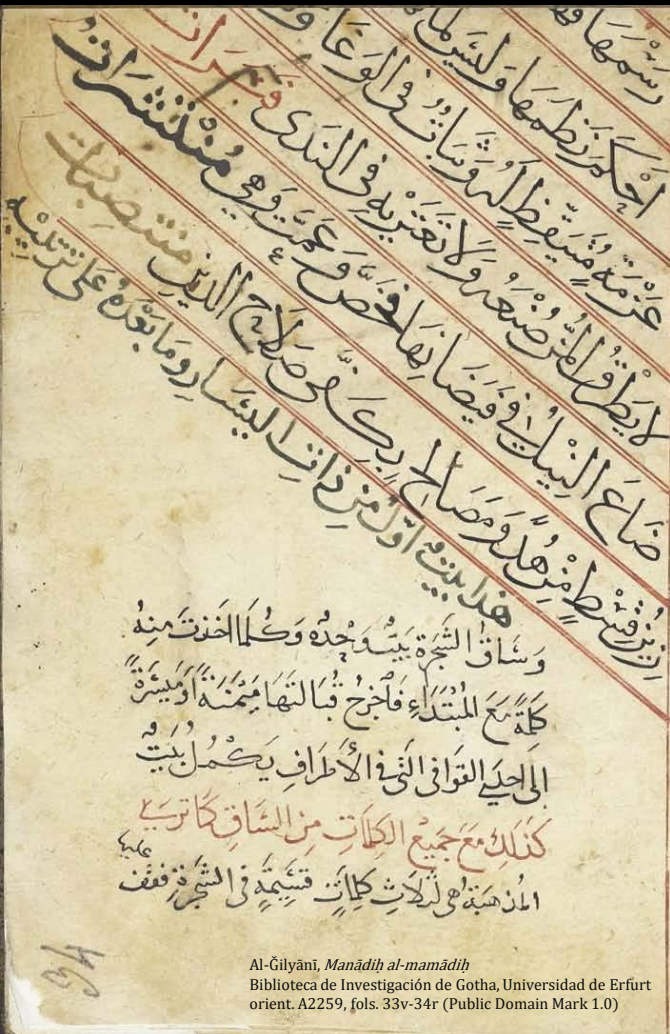 رسمها
احكم نظمها
عزمة متيقظ له وثبات في الوغا
لا يطرق المن صنعه ولا تعتريه في الندى فترات
ضاع النيل في فيضانها فخص وعمت وهي منتشرات
قسط من هدى ومصالح بكفي صلاح الدين منتصبات
هذا بيت اول من ذات اليسار وما بعده على ترتيبه
وساق الشجرة بيت وحده وكلما اخذت منه
كلمة مع المبتداء فاخرج قبالتها ميمنة او ميسرة
الى احدى القوافى التى فى الاطراف يكمل بيت
كذلك مع جميع الكلمات من الساق كما ترى
المذهبة هى لثلاث كلمات قسيمة فى الشجرة فقف
عليها
Al-Ǧilyānī, Manādiḥ al-mamādiḥ
Biblioteca de Investigación de Gotha, Universidad de Erfurt
orient. A2259, fols. 33v-34r (Public Domain Mark 1.0)